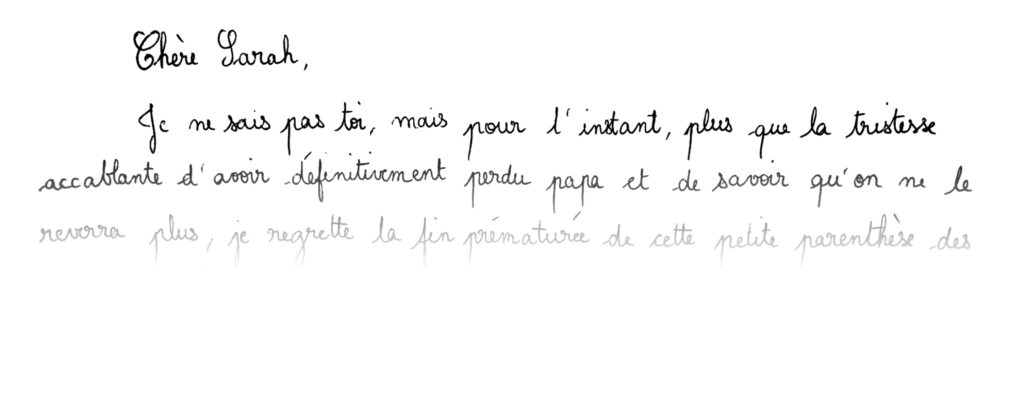 Chère Sarah,
Je ne sais pas toi, mais pour l'instant, plus que la tristesse
accablante d'avoir définitivement perdu papa et de savoir qu'on ne le
reverra plus, je regrette la fin prématurée de cette petite parenthèse des